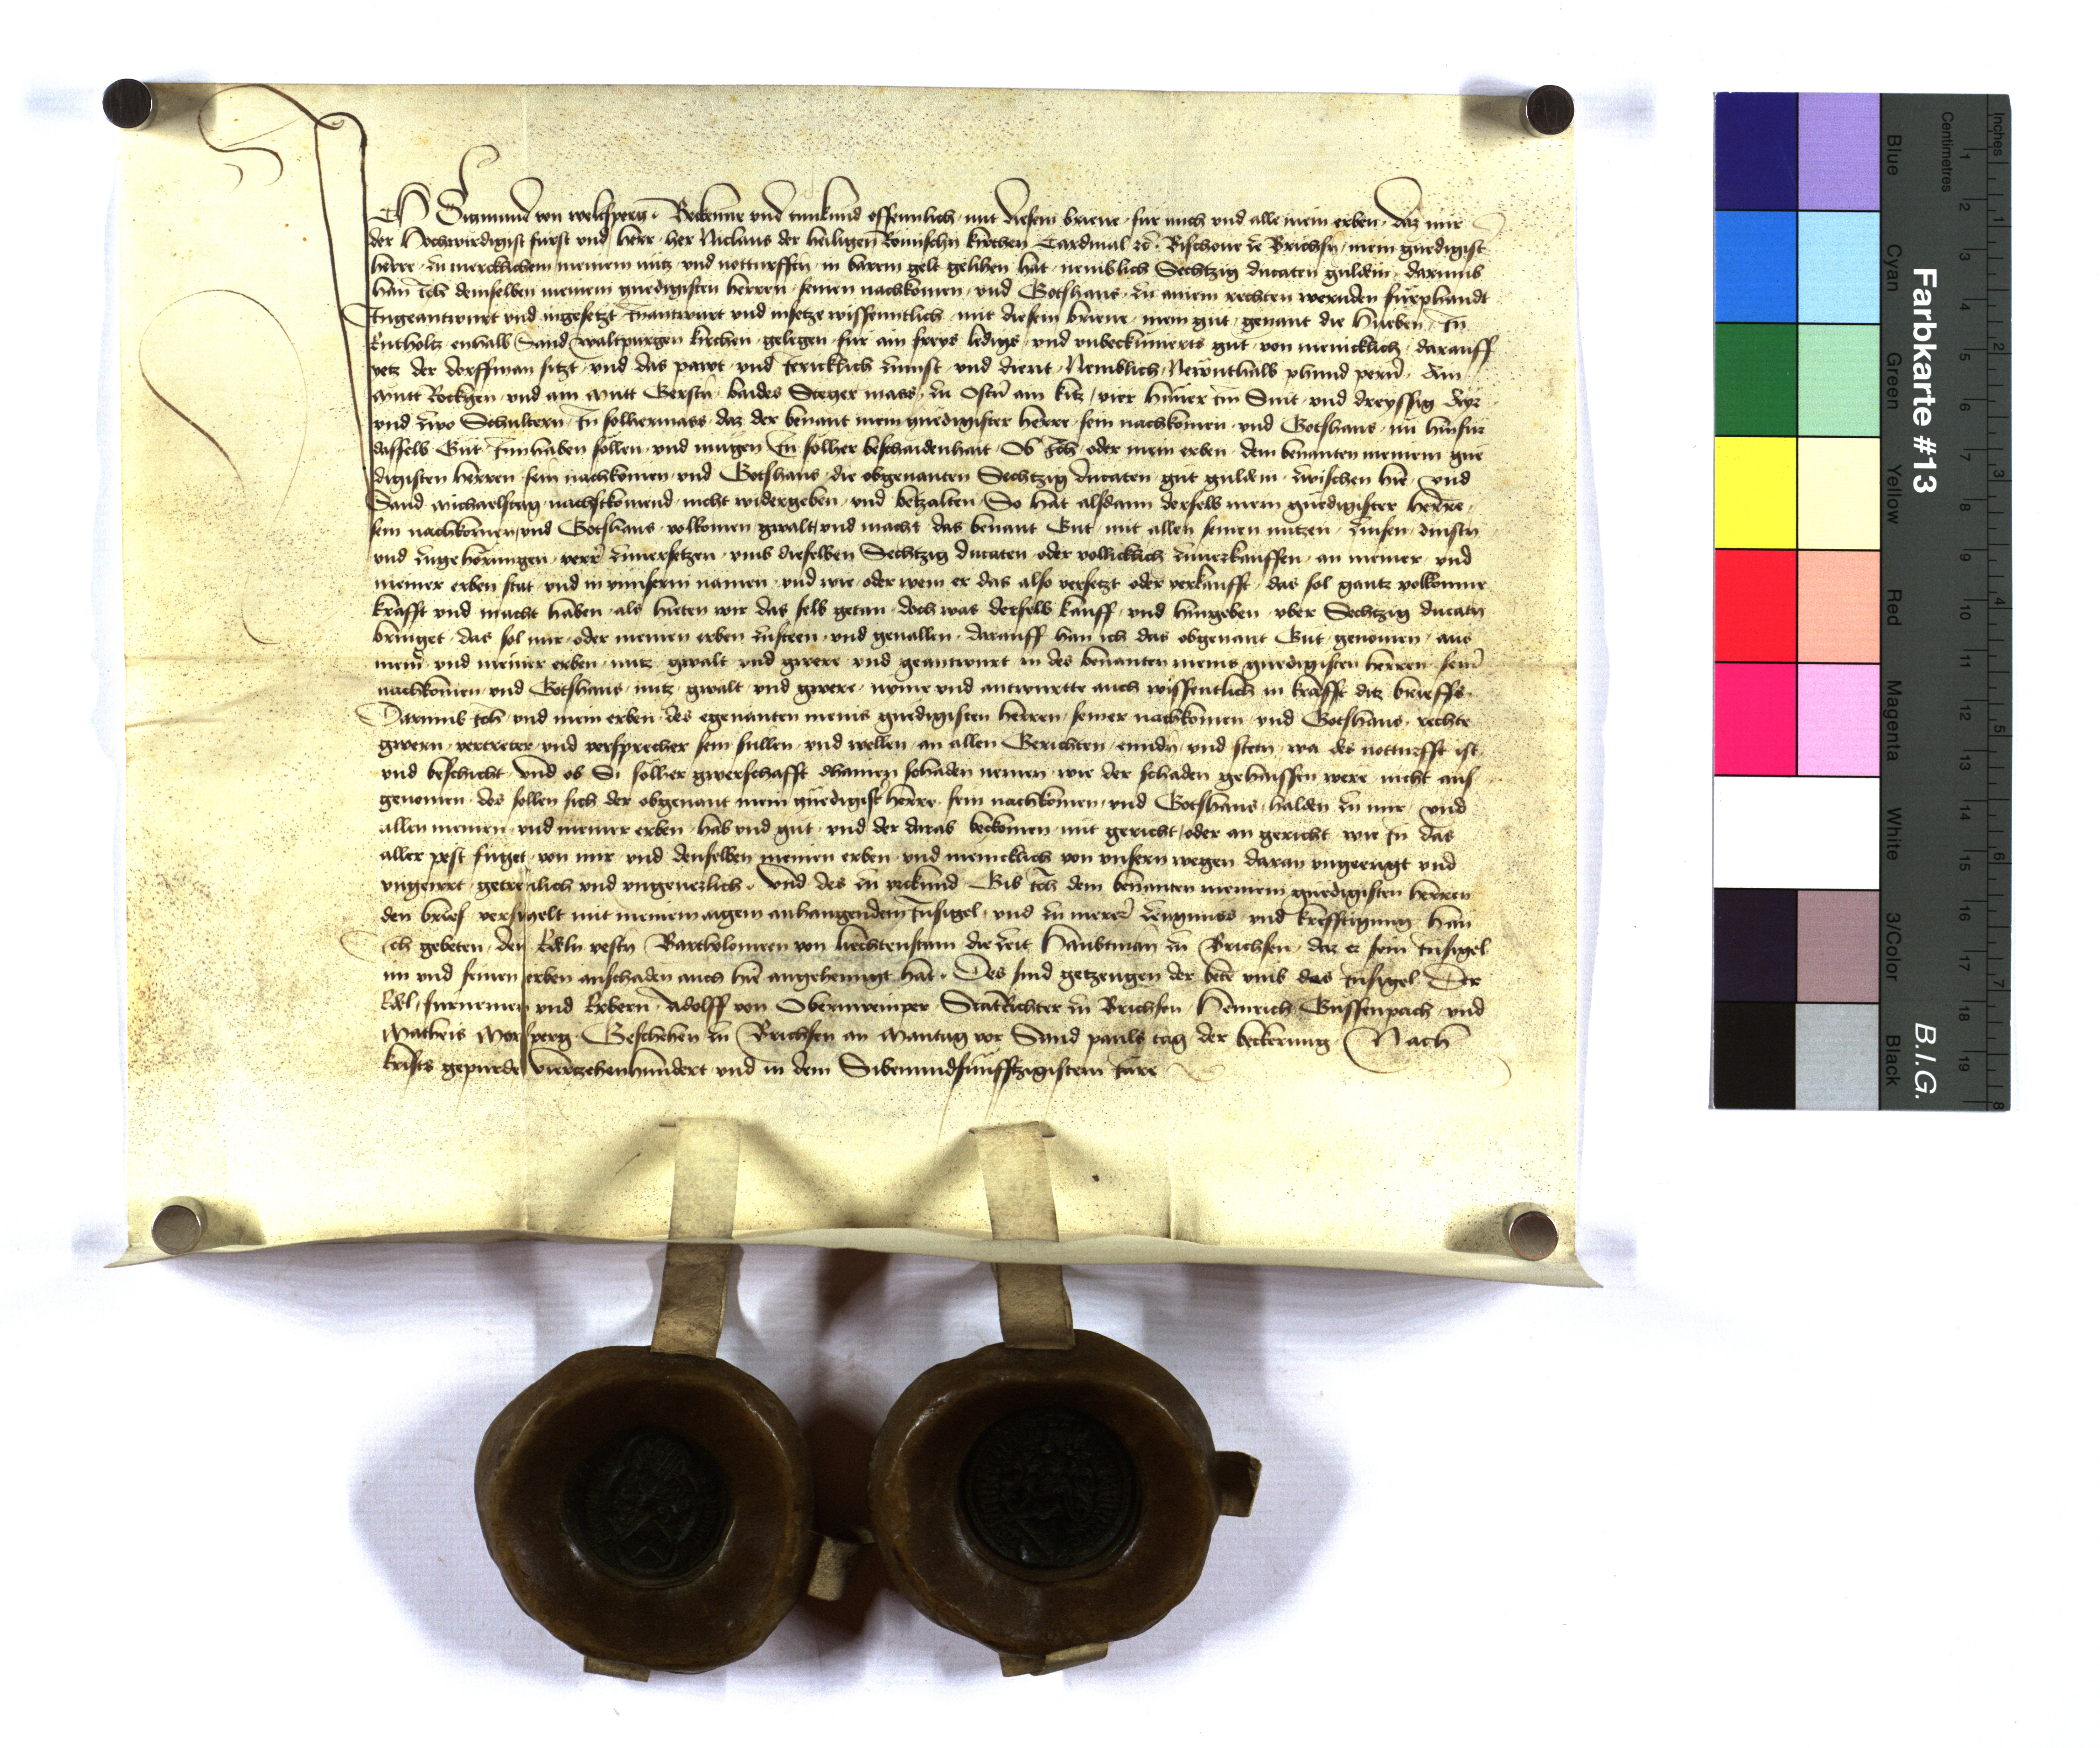 ICH Sigmund von welsperg · Bekenne und tunkund offennlich mit diesem brieue fur mich und alle mein erben · daz mir
der Hochwirdigist furst und herr her Niclaus der heiligen Romischn kirchen Cardinal Bischoue ze Brichsn mein gnedigist
herre zu mercklichem meinem nutz und notturfften in barem gelt gelihen hat nemblich Sechtzig ducaten guldein darumb
han ich demselben meinem gnedigisten herren seinen nachkomen und Gotshaus zu ainem rechten wernden furphandt
Ingeantwurt und ingesetzt Inantwurt und insetze wissenntlich mit diesem brieue mein gut genant die Hueben In
Entholtz enhalb Sand waltpurgen kirchen gelegen fur ain freys ledigs und unbekumerts gut von menicklich darauff
yetz der dorffman sitzt und das pawt und Jericklich zinnst und dient Nemblich Newnthalb phund perner Ain
Mutt Rockhen und ain Mutt Gersten baides Steger mass zu Ostern ain kitz vier huner Im Snit und dreyssig Ayr
und zwo Schultern In solhermass daz der benant mein gnedigister herre sein nachkomen und Gotshaus nu hinfur
dasselb Gut Innhaben sollen und mugen In solher beschaidenhait Ob Ich oder mein erben dem benanten meinem gne
digisten herren sein nachkomen und Gotshaus die obgenanten Sechtzig ducaten gut guldein zwischen hie und
Sand michaelstag nachstkomend nicht widergeben und betzalten So hat alsdann derselb mein gnedigister herre
sein nachkomen und Gotshaus volkomen gwalt und macht das benant Gut mit allen seinen nutzen zinsen dinsten
und zugehorungen verrer zuuersetzen umb dieselben Sechtzig ducaten oder vollicklich zuuerkauffen an meiner und
meiner erben stat und in unnserm namen und wie oder wem er das also versetzt oder verkaufft das sol gantz volkomne
krafft und macht haben als hieten wir das selb getan doch was derselb kauff und hingeben uber Sechtzig ducaten
bringet das sol mir oder meinen erben zusteen und geuallen darauff han ich das obgenant Gut genomen aus
meiner und meiner erben nutz gwalt und gwere und geantwurt in des benanten meins gnedigisten herren seiner
nachkomen und Gotshaus nutz gwalt und gwere nyme und antwurtte auch wissentlich in krafft ditz brieffs
Darumb Ich und mein erben des egenanten meins gnedigisten herren seiner nachkomen und Gotshaus rechte
gwern vertreter und versprecher sein sullen und wellen an allen Gerichten ennden und steten wa des notturfft ist
und beschicht und ob Si solher gwerschafft dhainen schaden nemen wie der schaden gehaissen were nicht aus
genomen des sollen sich der obgenant mein gnedigist herre sein nachkomen und Gotshaus halden zu mir und
allen meinen und meiner erben hab und gut und der darab bekomen mit gericht oder an gericht wie In das
aller pest fuget von mir und denselben meinen erben und menicklich von unsern wegen daran ungeengt und
ungeirrt getreulich und ungeuerlich · Und des zu urkund Gib Ich dem benanten meinem gnedigisten herren
den brief versigelt mit meinem aigem anhangendem Insigel und zu merer zeugnuss und krefftigung han
Ich gebeten den Edeln vesten Bartholomeen von liechtenstain die zeit Haubtman zu Brichsen daz er sein Insigel
im und seinen erben anschaden auch hie angehenngt hat · Des sind getzeugen der bete umb das Insigel Der
Edel furnemen und Erbern Adolff von Oberweinper StatRichter zu Brichsen Heinrich Gussenpach und
Matheis Morsperg Geschehen zu Brichsen an Mantag vor Sand pauls tag der bekerung Nach
krists gepurde vierzehenhundert und in dem Sibenundfunfftzigistem Jare
Farbkarte #13
B.I.G.
Inches
Centimetres
Blue
Cyan
Green
Yellow
Red
Magenta
White
3/Color
Black
1 2 3 4 5 6 7 8 9 10 11 12 13 14 15 16 17 18 19
1 2 3 4 5 6 7 8